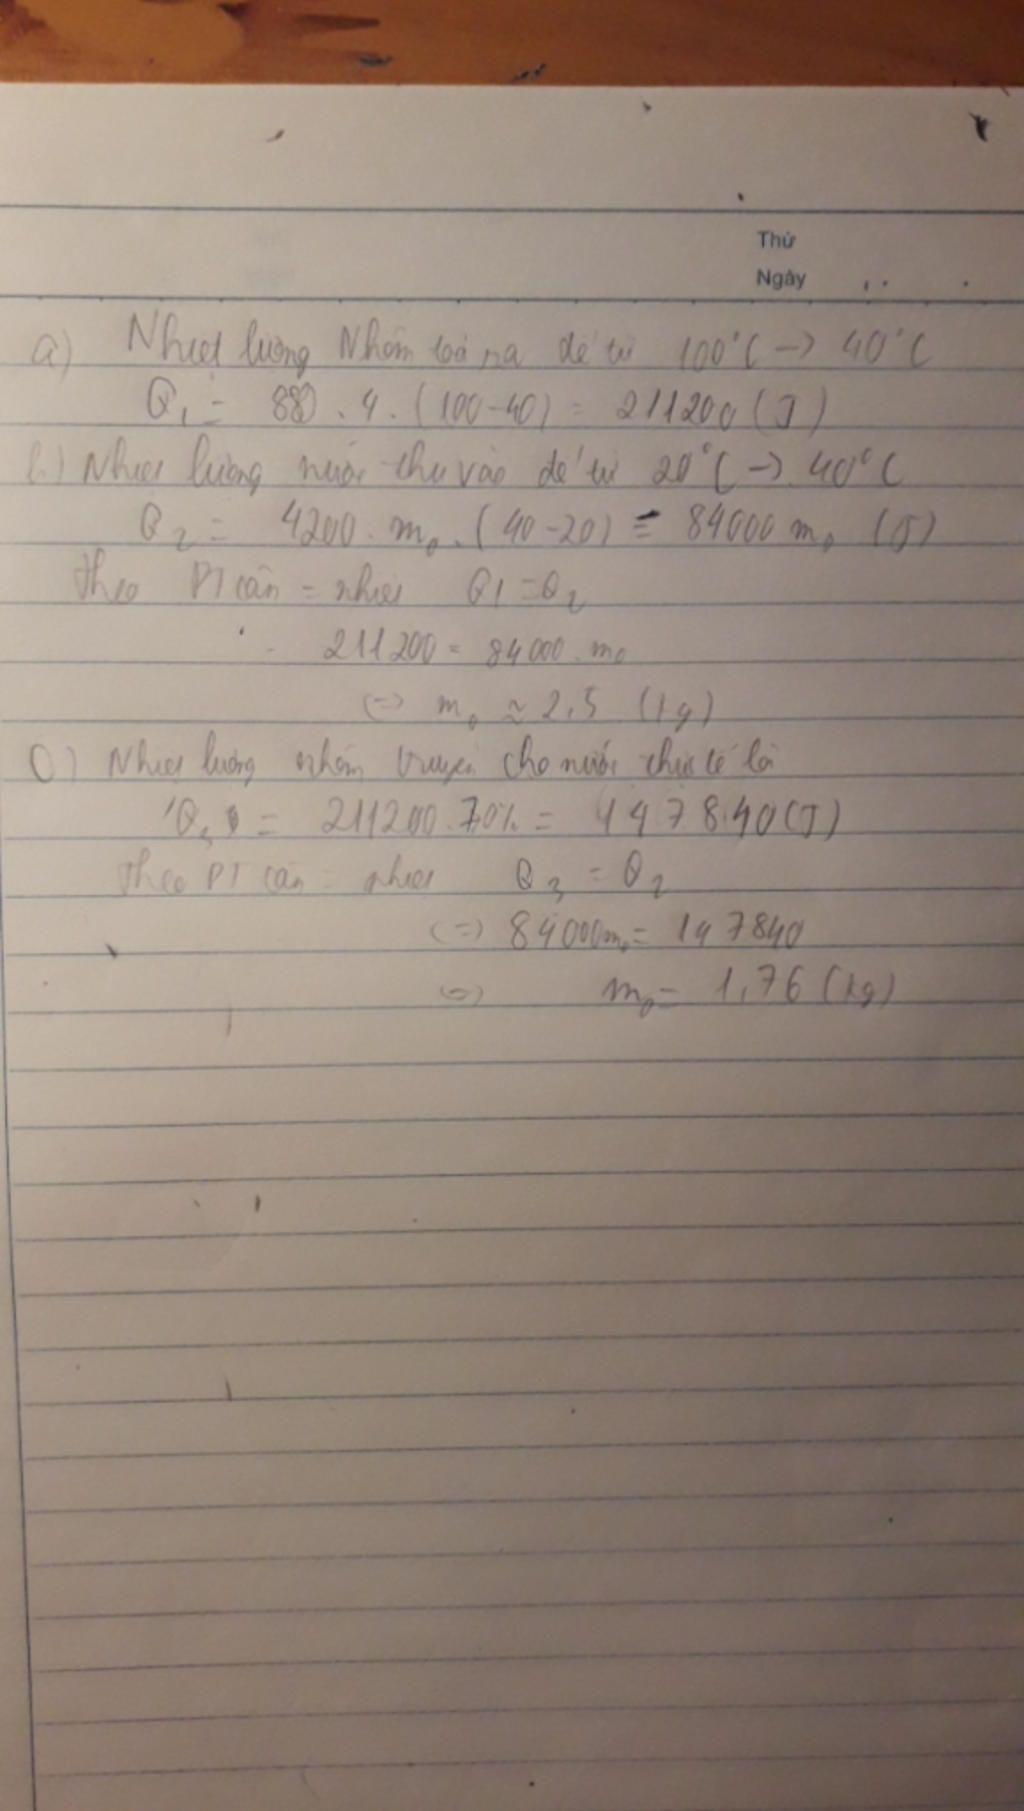 Thứ
Ngày
a) Nhiệt lượng Nhôm toả ra để từ 100°C -> 40°C
Q1 = 880 . 4 . (100-40) = 211200 (J)
b) Nhiệt lượng nước thu vào để từ 20°C -> 40°C
Q2 = 4200 . m0 . (40-20) = 84000 m0 (J)
Theo PT cân = nhiệt Q1 = Q2
211200 = 84000 . m0
(=) m0 ≈ 2,5 (kg)
C) Nhiệt lượng nhôm truyền cho nước thực tế là
= 211200 . 70% = 147840 (J)
Theo PT cân = nhiệt Q3 = Q2
(=) 84000m0 = 147840
(=) m0 = 1,76 (kg)